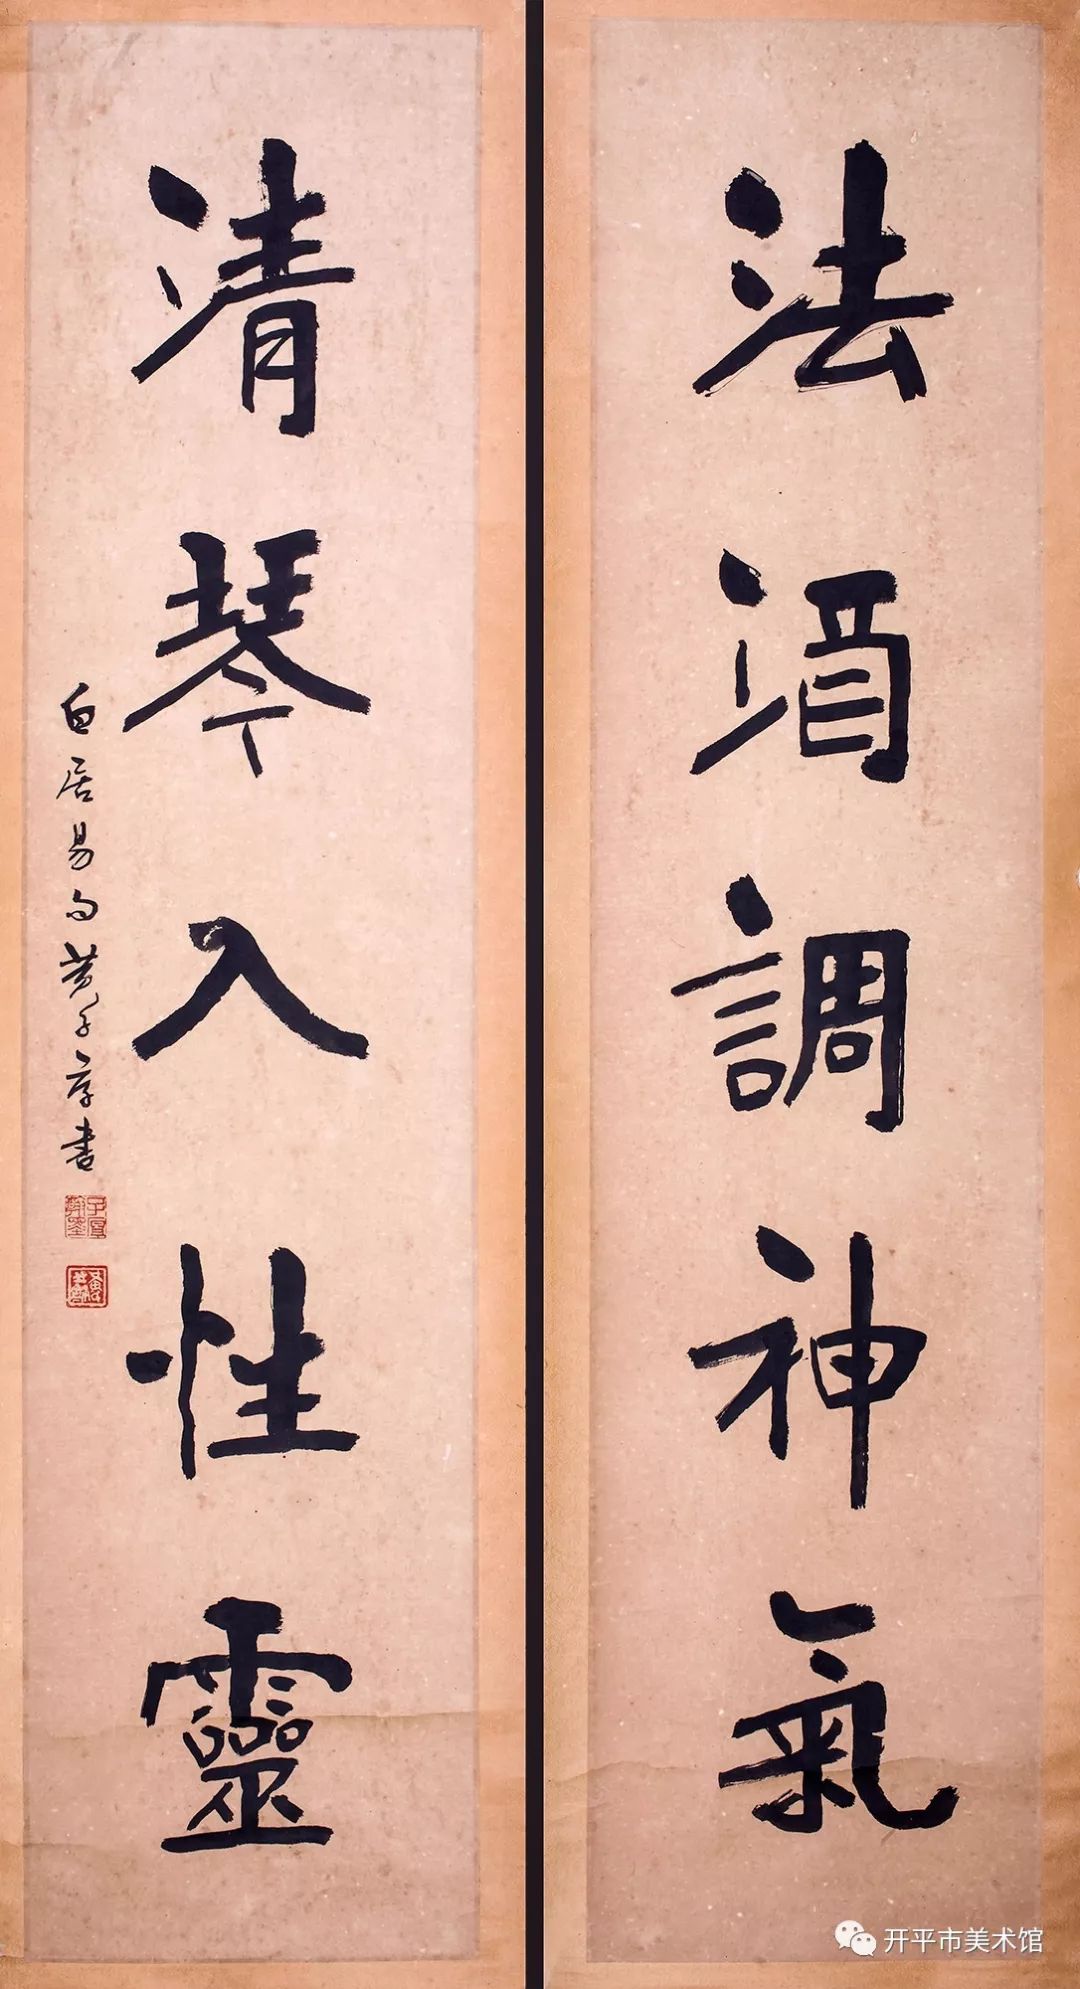 法酒調神氣
清琴入性靈
白居易句黄子厚書
开平市美术馆